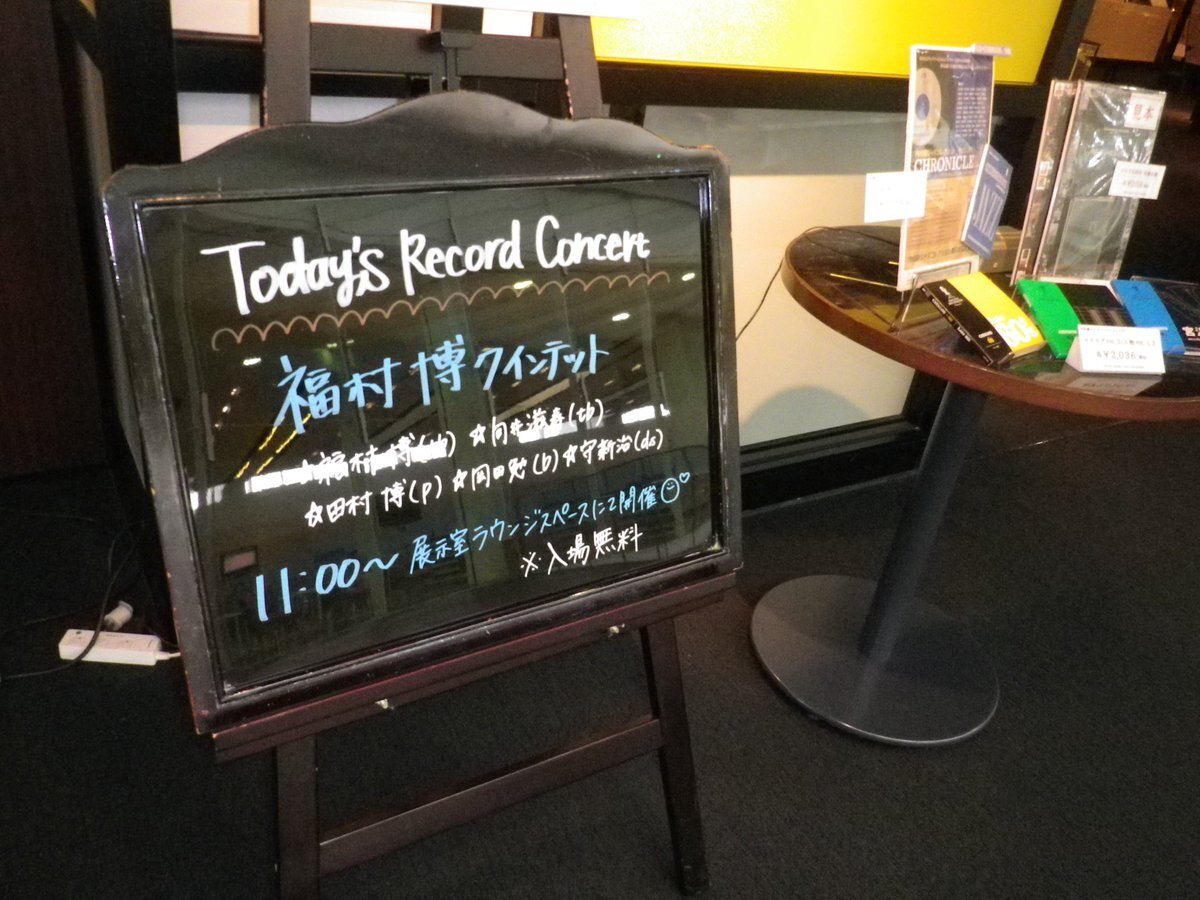 Today's Record Concert
福村 博クインテット
☆福村 博(tb) ☆向井滋春(tb)
☆田村 博(p) ☆岡田勉(b) ☆守新治(ds)
11:00〜 展示室ラウンジスペースにて開催
※入場無料
CHRONICLE
見本
¥3,036